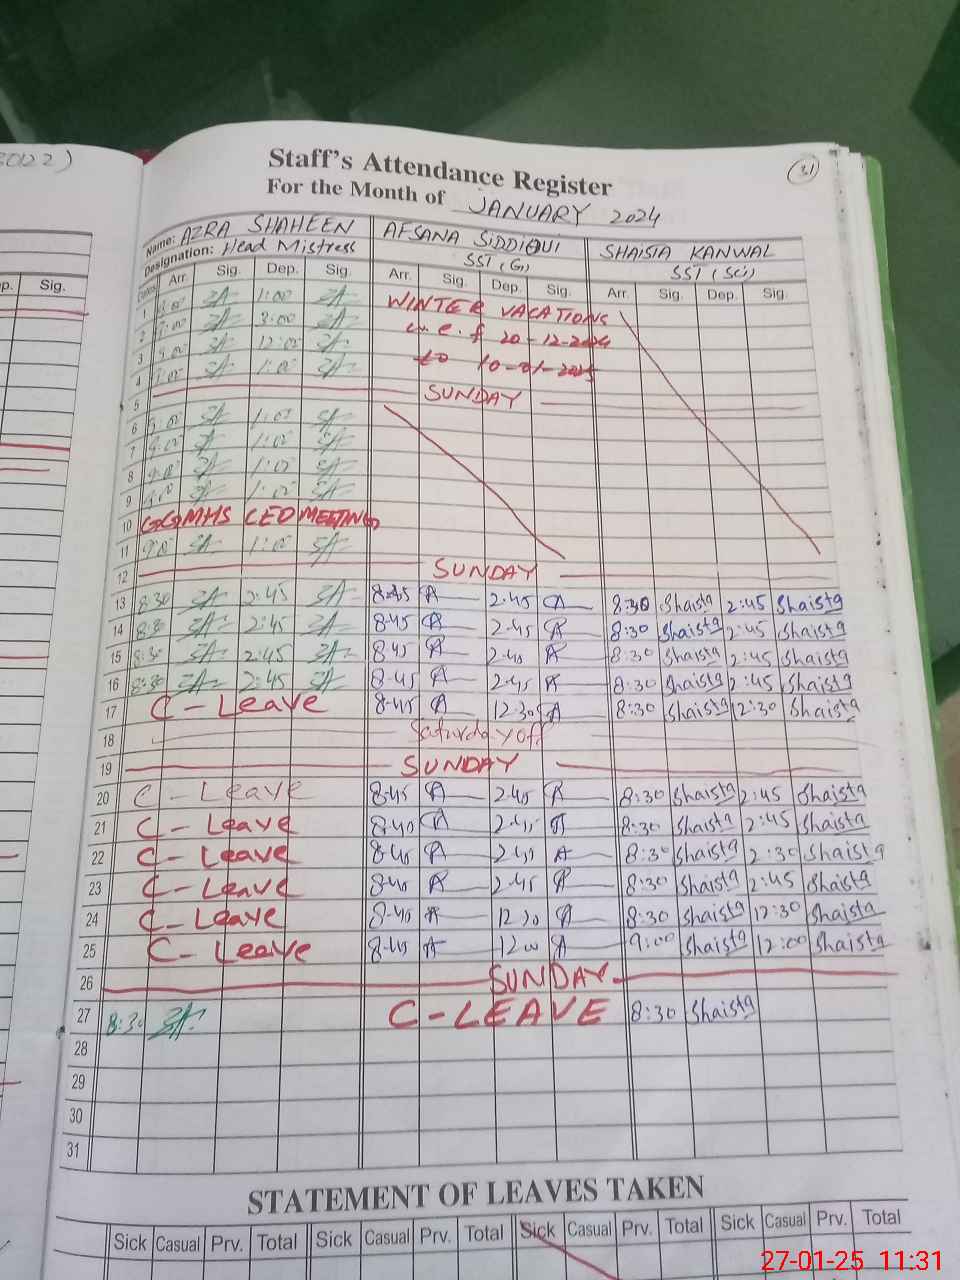 30122)
31
Staff's Attendance Register
For the Month of JANUARY 2024
Name: AZRA SHAHEEN AFSANA SIDDIQUI SHAISTA KANWAL
Designation: Head Mistress SST (G) SST (Sci)
p. Sig. Dates Arr. Sig. Dep. Sig. Arr. Sig. Dep. Sig. Arr. Sig. Dep. Sig.
1 1:00 WINTER VACATIONS
2 3:00 w.e.f 20-12-2024
3 12:00 to 10-01-2025
4 1:00
5 SUNDAY
6 9:00 1:00
7 9:00 1:00
8 9:00 1:00
9 9:00 1:00
10 GGMHS CEO MEETING
11 9:00 1:00
12 SUNDAY
13 8:30 2:45 8:45 A 2:45 A 8:30 Shaista 2:45 Shaista
14 8:30 2:45 8:45 A 2:45 A 8:30 Shaista 2:45 Shaista
15 8:30 2:45 8:45 A 2:45 A 8:30 Shaista 2:45 Shaista
16 8:30 2:45 8:45 A 2:45 A 8:30 Shaista 2:45 Shaista
17 C - Leave 8:45 A 12:30 A 8:30 Shaista 12:30 Shaista
18 Saturday off
19 SUNDAY
20 C - Leave 8:45 A 2:45 A 8:30 Shaista 2:45 Shaista
21 C - Leave 8:45 A 2:45 A 8:30 Shaista 2:45 Shaista
22 C - Leave 8:45 A 2:45 A 8:30 Shaista 2:30 Shaista
23 C - Leave 8:45 A 2:45 A 8:30 Shaista 2:45 Shaista
24 C - Leave 8:45 A 12 30 A 8:30 Shaista 12:30 Shaista
25 C - Leave 8:45 A 12 00 A 9:00 Shaista 12:00 Shaista
26 SUNDAY
27 8:30 C - LEAVE 8:30 Shaista
28
29
30
31
STATEMENT OF LEAVES TAKEN
Sick Casual Prv. Total Sick Casual Prv. Total Sick Casual Prv. Total Sick Casual Prv. Total
27-01-25 11:31